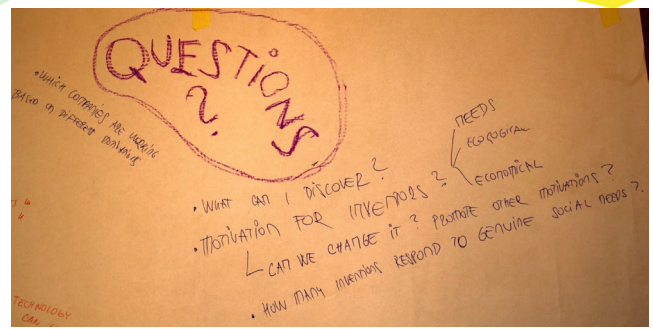 QUESTIONS
?
• WHICH COMPANIES ARE WORKING
BASED ON DIFFERENT
• WHAT CAN I DISCOVER?
• MOTIVATION FOR INVENTORS?
NEEDS
ECOLOGICAL
ECONOMICAL
CAN WE CHANGE IT? PROMOTE OTHER MOTIVATIONS?
• HOW MANY INVENTIONS RESPOND TO GENUINE SOCIAL NEEDS?
TECHNOLOGY
CAN